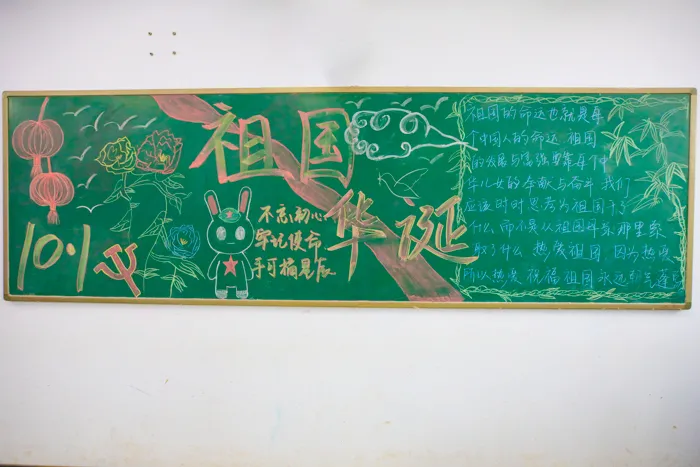 10·1
祖国
华诞
不忘初心
牢记使命
手可摘星辰
祖国的命运也就是每
个中国人的命运 祖国
的发展与富强要靠每个中
华儿女的奉献与奋斗 我们
应该时时思考为祖国干了
什么,而不是从祖国母亲那里索
取了什么 热爱祖国 因为热爱
所以热爱 祝福祖国永远